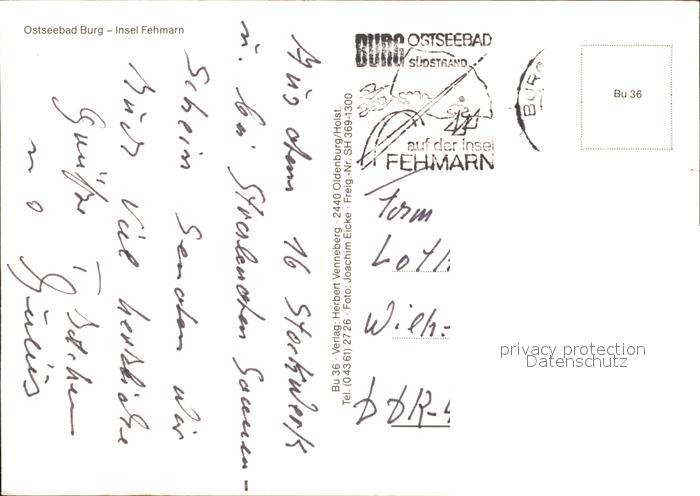 Ostseebad Burg – Insel Fehmarn
Aus dem 16 Stockwerk
u. bei strahlenden Sonnen-
schein senden wir
Euch viel herzliche
Grüße
Julius
Bu 36 · Verlag: Herbert Venneberg · 2440 Oldenburg/Holst.
Tel. (0 43 61) 27 26 · Foto: Joachim Eicke · Freig.-Nr. SH 369-1300
BURG OSTSEEBAD
SÜDSTRAND
auf der Insel
FEHMARN
BURG
Bu 36
Fam
Loth
Wilh-
DDR-
privacy protection
Datenschutz